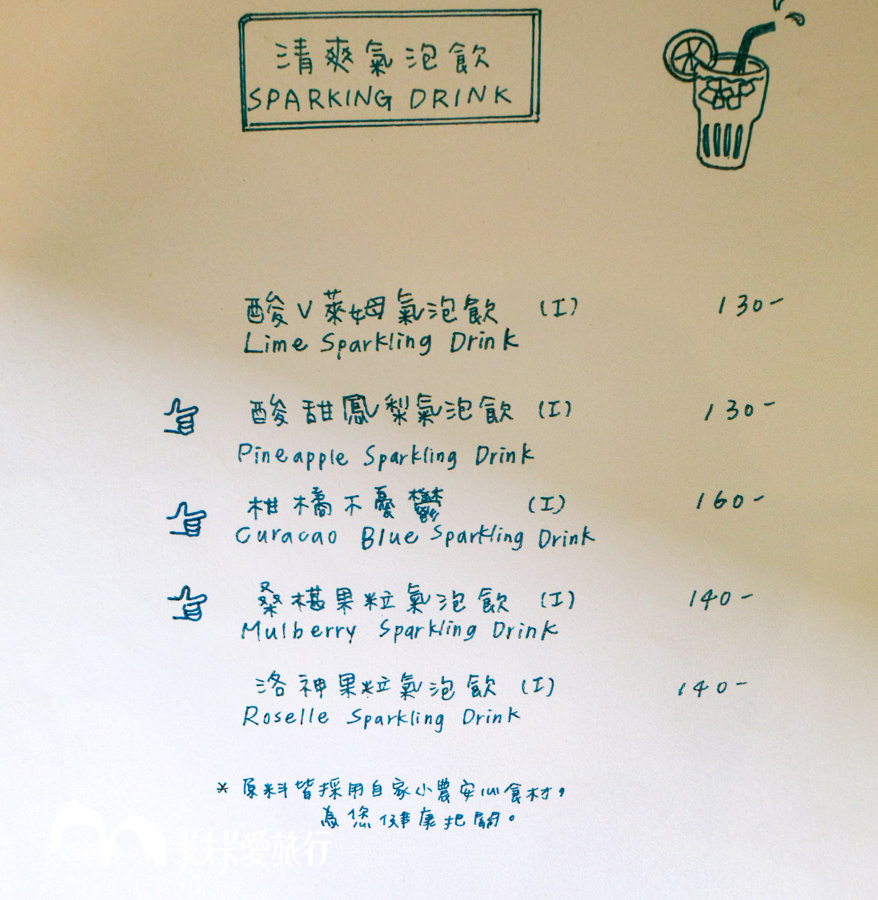 清爽氣泡飲
SPARKING DRINK
酸V萊姆氣泡飲 (I) 130-
Lime Sparkling Drink
酸甜鳳梨氣泡飲 (I) 130-
Pineapple Sparkling Drink
柑橘不憂鬱 (I) 160-
Curacao Blue Sparkling Drink
桑椹果粒氣泡飲 (I) 140-
Mulberry Sparkling Drink
洛神果粒氣泡飲 (I) 140-
Roselle Sparkling Drink
* 原料皆採用自家小農安心食材，
為您健康把關。
愛旅行